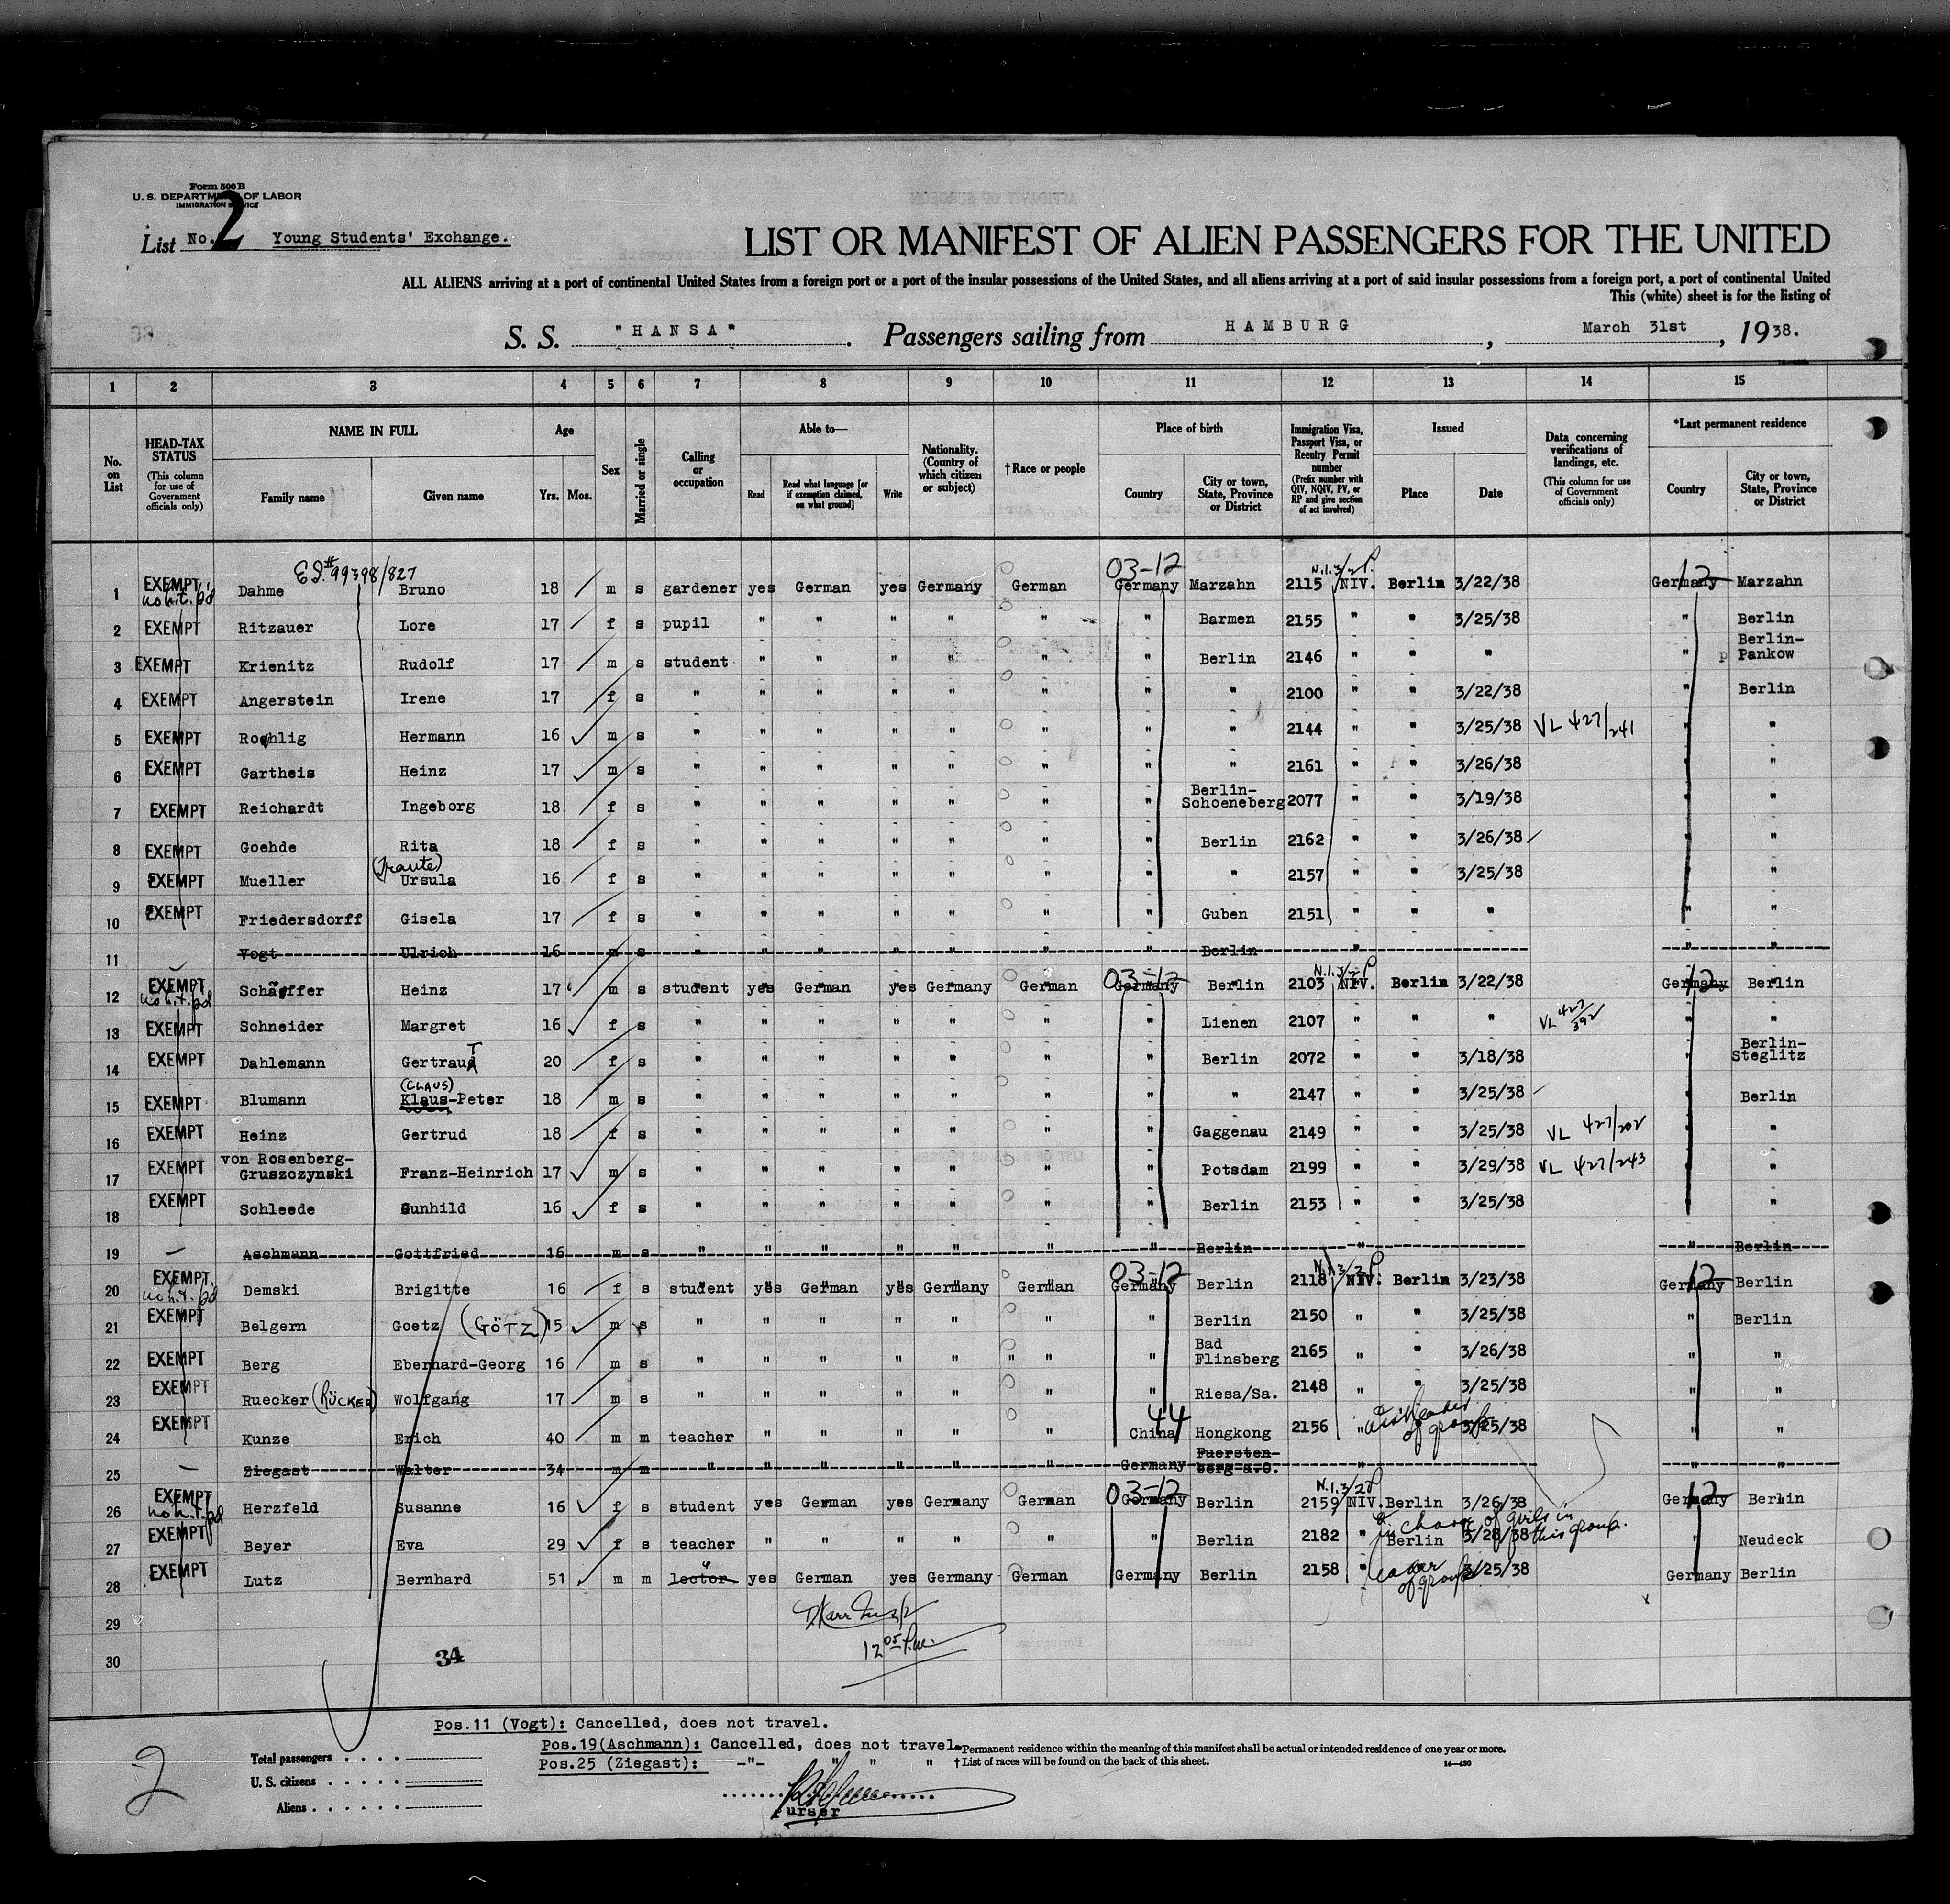 Form 500 B
U. S. DEPARTMENT OF LABOR
IMMIGRATION SERVICE
List No. 2 Young Students' Exchange.
LIST OR MANIFEST OF ALIEN PASSENGERS FOR THE UNITED
ALL ALIENS arriving at a port of continental United States from a foreign port or a port of the insular possessions of the United States, and all aliens arriving at a port of said insular possessions from a foreign port, a port of continental United
This (white) sheet is for the listing of
S. S. "HANSA". Passengers sailing from HAMBURG, March 31st, 1938.
1 2 3 4 5 6 7 8 9 10 11 12 13 14 15
No. on List
HEAD-TAX STATUS (This column for use of Government officials only)
NAME IN FULL Family name Given name
Age Yrs. Mos.
Sex
Married or single
Calling or occupation
Able to— Read Read what language [or if exemption claimed, on what ground] Write
Nationality. (Country of which citizen or subject)
†Race or people
Place of birth Country City or town, State, Province or District
Immigration Visa, Passport Visa, or Reentry Permit number (Prefix number with QIV, NQIV, PV, or RP and give section of act involved)
Issued Place Date
Data concerning verifications of landings, etc. (This column for use of Government officials only)
*Last permanent residence Country City or town, State, Province or District
99398/827 03-12 12
1 EXEMPT Dahme Bruno 18 m s gardener yes German yes Germany German Germany Marzahn 2115 NIV. Berlin 3/22/38 Germany Marzahn
2 EXEMPT Ritzauer Lore 17 f s pupil " " " " " " Barmen 2155 " " 3/25/38 " Berlin
3 EXEMPT Krienitz Rudolf 17 m s student " " " " " " Berlin 2146 " " " " p Berlin-Pankow
4 EXEMPT Angerstein Irene 17 f s " " " " " " " " 2100 " " 3/22/38 Berlin
5 EXEMPT Roehlig Hermann 16 m s " " " " " " " " 2144 " " 3/25/38 VL 427/241 " "
6 EXEMPT Gartheis Heinz 17 m s " " " " " " " " 2161 " " 3/26/38 " "
7 EXEMPT Reichardt Ingeborg 18 f s " " " " " " " Berlin-Schoeneberg 2077 " " 3/19/38 " "
8 EXEMPT Goehde Rita 18 f s " " " " " " " Berlin 2162 " " 3/26/38 " "
9 EXEMPT Mueller (Traute) Ursula 16 f s " " " " " " " " 2157 " " 3/25/38 " "
10 EXEMPT Friedersdorff Gisela 17 f s " " " " " " " Guben 2151 " " " " "
11 Vogt Ulrich 16 m s " " " " " " " Berlin " " "
12 EXEMPT Schäffer Heinz 17 m s student yes German yes Germany German 03-12 Germany Berlin 2103 NIV. Berlin 3/22/38 12 Germany Berlin
13 EXEMPT Schneider Margret 16 f s " " " " " " " Lienen 2107 " " " VL 427/392 " "
14 EXEMPT Dahlemann Gertraud T 20 f s " " " " " " " Berlin 2072 " " 3/18/38 " Berlin-Steglitz
15 EXEMPT Blumann (CLAUS) Klaus-Peter 18 m s " " " " " " " " 2147 " " 3/25/38 " Berlin
16 EXEMPT Heinz Gertrud 18 f s " " " " " " " Gaggenau 2149 " " 3/25/38 VL 427/202 " "
17 EXEMPT von Rosenberg-Gruszczynski Franz-Heinrich 17 m s " " " " " " " Potsdam 2199 " " 3/29/38 VL 427/243 " "
18 EXEMPT Schleede Gunhild 16 f s " " " " " " " Berlin 2153 " " 3/25/38 " "
19 — Aschmann Gottfried 16 m s " " " " " " " Berlin " " Berlin
20 EXEMPT Demski Brigitte 16 f s student yes German yes Germany German 03-12 Germany Berlin 2118 NIV. Berlin 3/23/38 12 Germany Berlin
21 EXEMPT Belgern Goetz (GÖTZ) 15 m s " " " " " " " Berlin 2150 " " 3/25/38 " Berlin
22 EXEMPT Berg Eberhard-Georg 16 m s " " " " " " " Bad Flinsberg 2165 " " 3/26/38 " "
23 EXEMPT Ruecker (RÜCKER) Wolfgang 17 m s " " " " " " " Riesa/Sa. 2148 " " 3/25/38 " "
24 EXEMPT Kunze Erich 40 m m teacher " " " " " 44 China Hongkong 2156 " of group 3/25/38 " "
25 — Ziegast Walter 34 m m " " " " " " Germany Fuerstenberg a.O. " " "
26 EXEMPT Herzfeld Susanne 16 f s student yes German yes Germany German 03-12 Germany Berlin 2159 NIV. Berlin 3/26/38 12 Germany Berlin
27 EXEMPT Beyer Eva 29 f s teacher " " " " " " Berlin 2182 " Berlin 3/28/38 in charge of girls in this group. " Neudeck
28 EXEMPT Lutz Bernhard 51 m m lector " yes German yes Germany German Germany Berlin 2158 " leader of group 3/25/38 Germany Berlin
29
30
34
12 05 P.m.
Pos.11 (Vogt): Cancelled, does not travel.
Pos.19(Aschmann): Cancelled, does not travel.
Pos.25 (Ziegast): -"- " " "
*Permanent residence within the meaning of this manifest shall be actual or intended residence of one year or more.
† List of races will be found on the back of this sheet.
14—430
2
Total passengers
U. S. citizens
Aliens
Purser